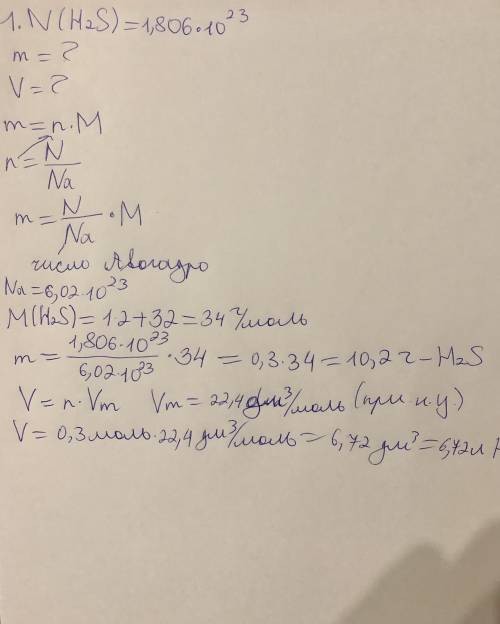 1. N(H₂S)=1,806·10²³
m = ?
V = ?
m = n·M
n = N/Na
m = N/Na · M
число Авогадро
Na = 6,02·10²³
M(H₂S) = 1·2+32 = 34 г/моль
m = 1,806·10²³/6,02·10²³ · 34 = 0,3·34 = 10,2 г – H₂S
V = n·Vm Vm = 22,4 дм³/моль (при н.у.)
V = 0,3 моль·22,4 дм³/моль = 6,72 дм³ = 6,72 л